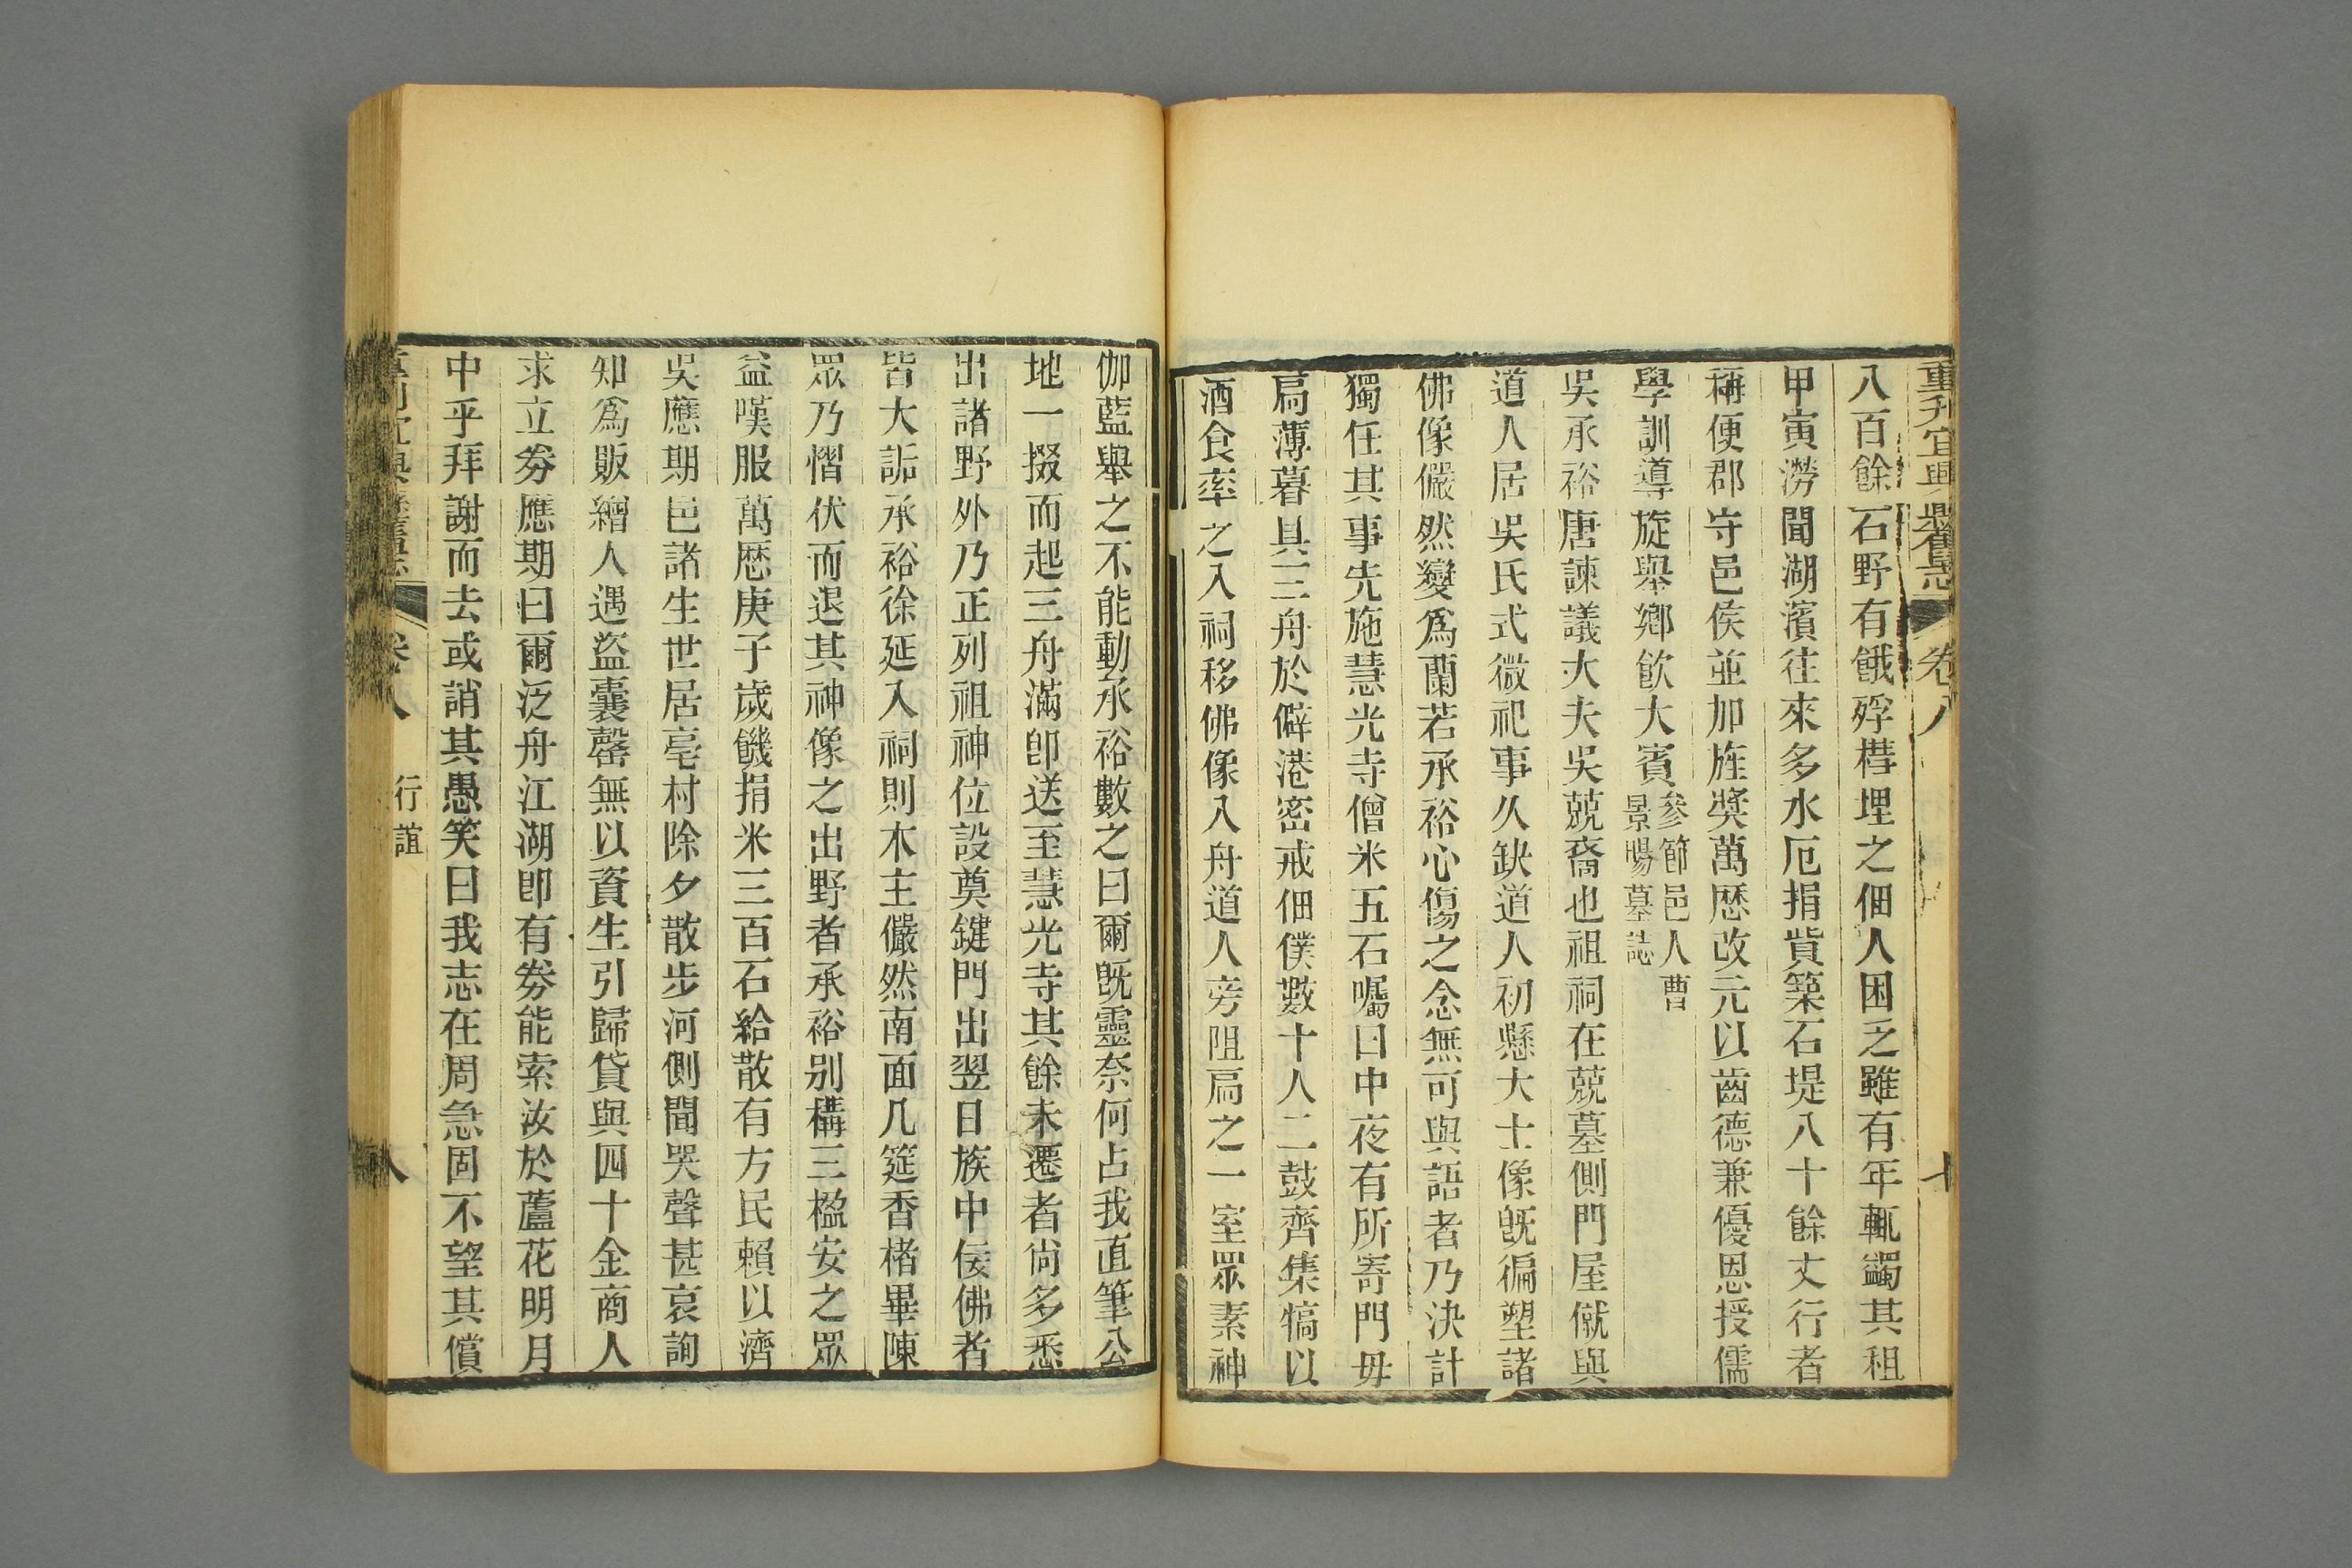 重刋宜興縣舊志 卷八 七
八百餘石野有餓殍槥埋之佃人困乏雖有年輒蠲其租
甲寅澇聞湖濱往來多水厄捐貲築石堤八十餘丈行者
稱便郡守邑侯並加旌奬萬厯改元以齒德兼優恩授儒
學訓導旋舉鄉飲大賓參節邑人曹
景暘墓誌
吳承裕唐諫議大夫吳兢裔也祖祠在兢墓側門屋僦與
道人居吳氏式微祀事久缺道人初懸大士像旣徧塑諸
佛像儼然變爲蘭若承裕心傷之念無可與語者乃決計
獨任其事先施慧光寺僧米五石囑曰中夜有所寄門毋
扃薄暮具三舟於僻港密戒佃僕數十人二鼓齊集犒以
酒食率之入祠移佛像入舟道人旁阻扃之一室眾素神
伽藍舉之不能動承裕數之曰爾旣靈奈何占我直筆公
地一掇而起三舟滿卽送至慧光寺其餘未遷者尙多悉
出諸野外乃正列祖神位設奠鍵門出翌日族中佞佛者
皆大詬承裕徐延入祠則木主儼然南面几筵香楮畢陳
眾乃慴伏而退其神像之出野者承裕别構三楹安之眾
益嘆服萬厯庚子歲饑捐米三百石給散有方民賴以濟
吳應期邑諸生世居亳村除夕散步河側聞哭聲甚哀詢
知爲販繒人遇盜囊罄無以資生引歸貸與四十金商人
求立劵應期曰爾泛舟江湖卽有劵能索汝於蘆花明月
中乎拜謝而去或誚其愚笑曰我志在周急固不望其償
卷八 行誼 八